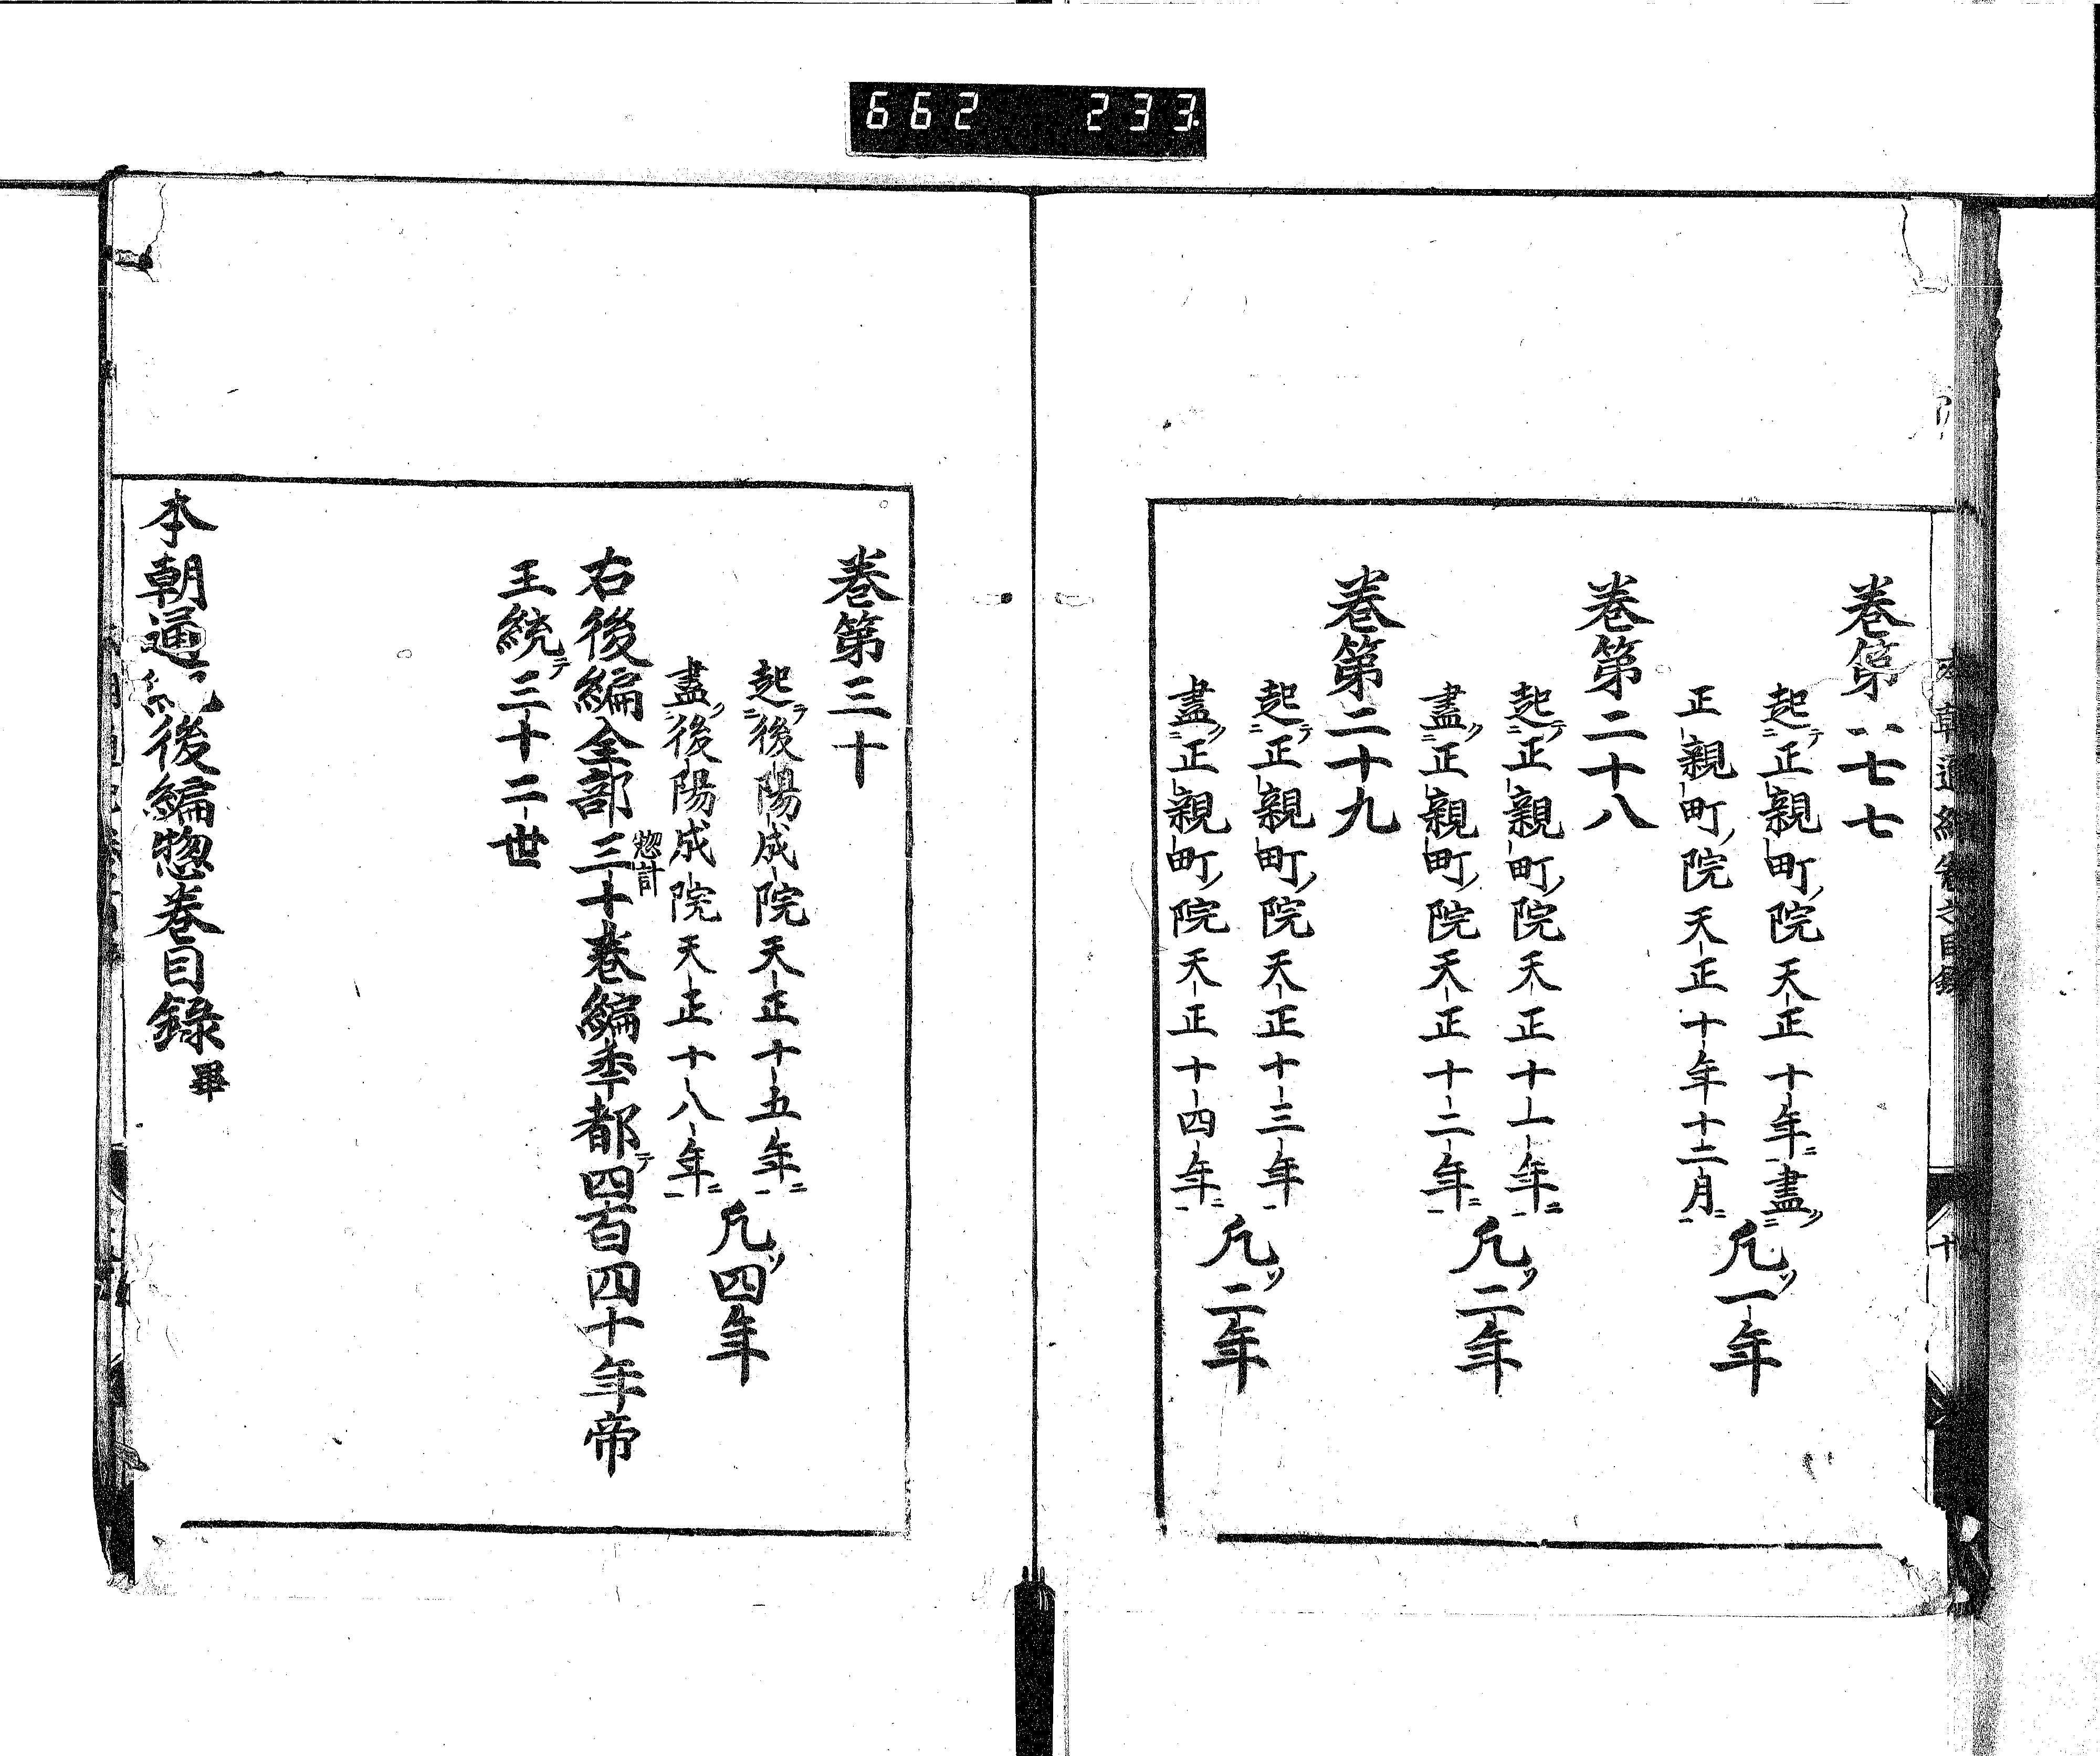 662 233
本朝通紀卷之目錄
十
卷第二十七
起正親町院天正十年盡
正親町院天正十年十二月
凡一年
卷第二十八
起正親町院天正十一年
盡正親町院天正十二年
凡二年
卷第二十九
起正親町院天正十三年
盡正親町院天正十四年
凡二年
卷第三十
起後陽成院天正十五年
盡後陽成院天正十八年
凡四年
惣計
右後編全部三十卷編秊都四百四十年帝
王統三十二世
本朝通紀後編惣卷目錄畢